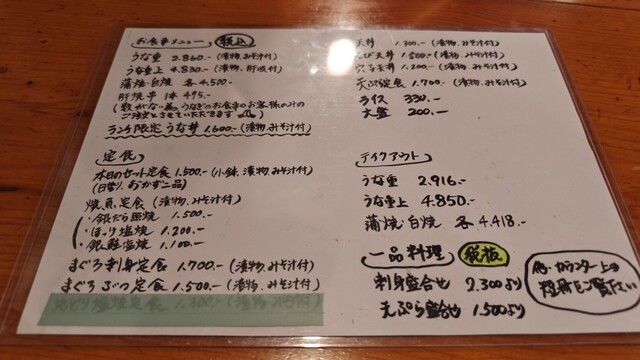 お食事メニュー 税込
うな重 2.860.- (漬物、みそ汁付)
うな重上 4.830.- (漬物、肝吸付)
蒲焼・白焼 各4.500.-
肝焼 串 1本 495.-
(数がない為、うなぎのお食事のお客様のみの
ご注文とさせていただきます)
ランチ限定 うな丼 1.600.- (漬物、みそ汁付)
定食
本日のセット定食 1.500.- (小鉢、漬物、みそ汁付)
(日替り、おかず二品)
焼魚定食 (漬物、みそ汁付)
・銀だら照焼 1.500.-
・ほっけ塩焼 1.200.-
・銀鮭塩焼 1.100.-
まぐろ刺身定食 1.700.- (漬物、みそ汁付)
まぐろぶつ定食 1.500.- (漬物、みそ汁付)
天丼 1.300.- (漬物、みそ汁付)
えび天丼 1.500.- (漬物、みそ汁付)
穴子天丼 1.300.- (漬物、みそ汁付)
天ぷら定食 1.700.- (漬物、みそ汁付)
ライス 330.-
大盛 200.-
テイクアウト
うな重 2.916.-
うな重上 4.850.-
蒲焼・白焼 各4.418.-
一品料理 税抜
刺身盛合せ 2.300より
天ぷら盛合せ 1.500より
他、カウンター上の
短冊をご覧下さい